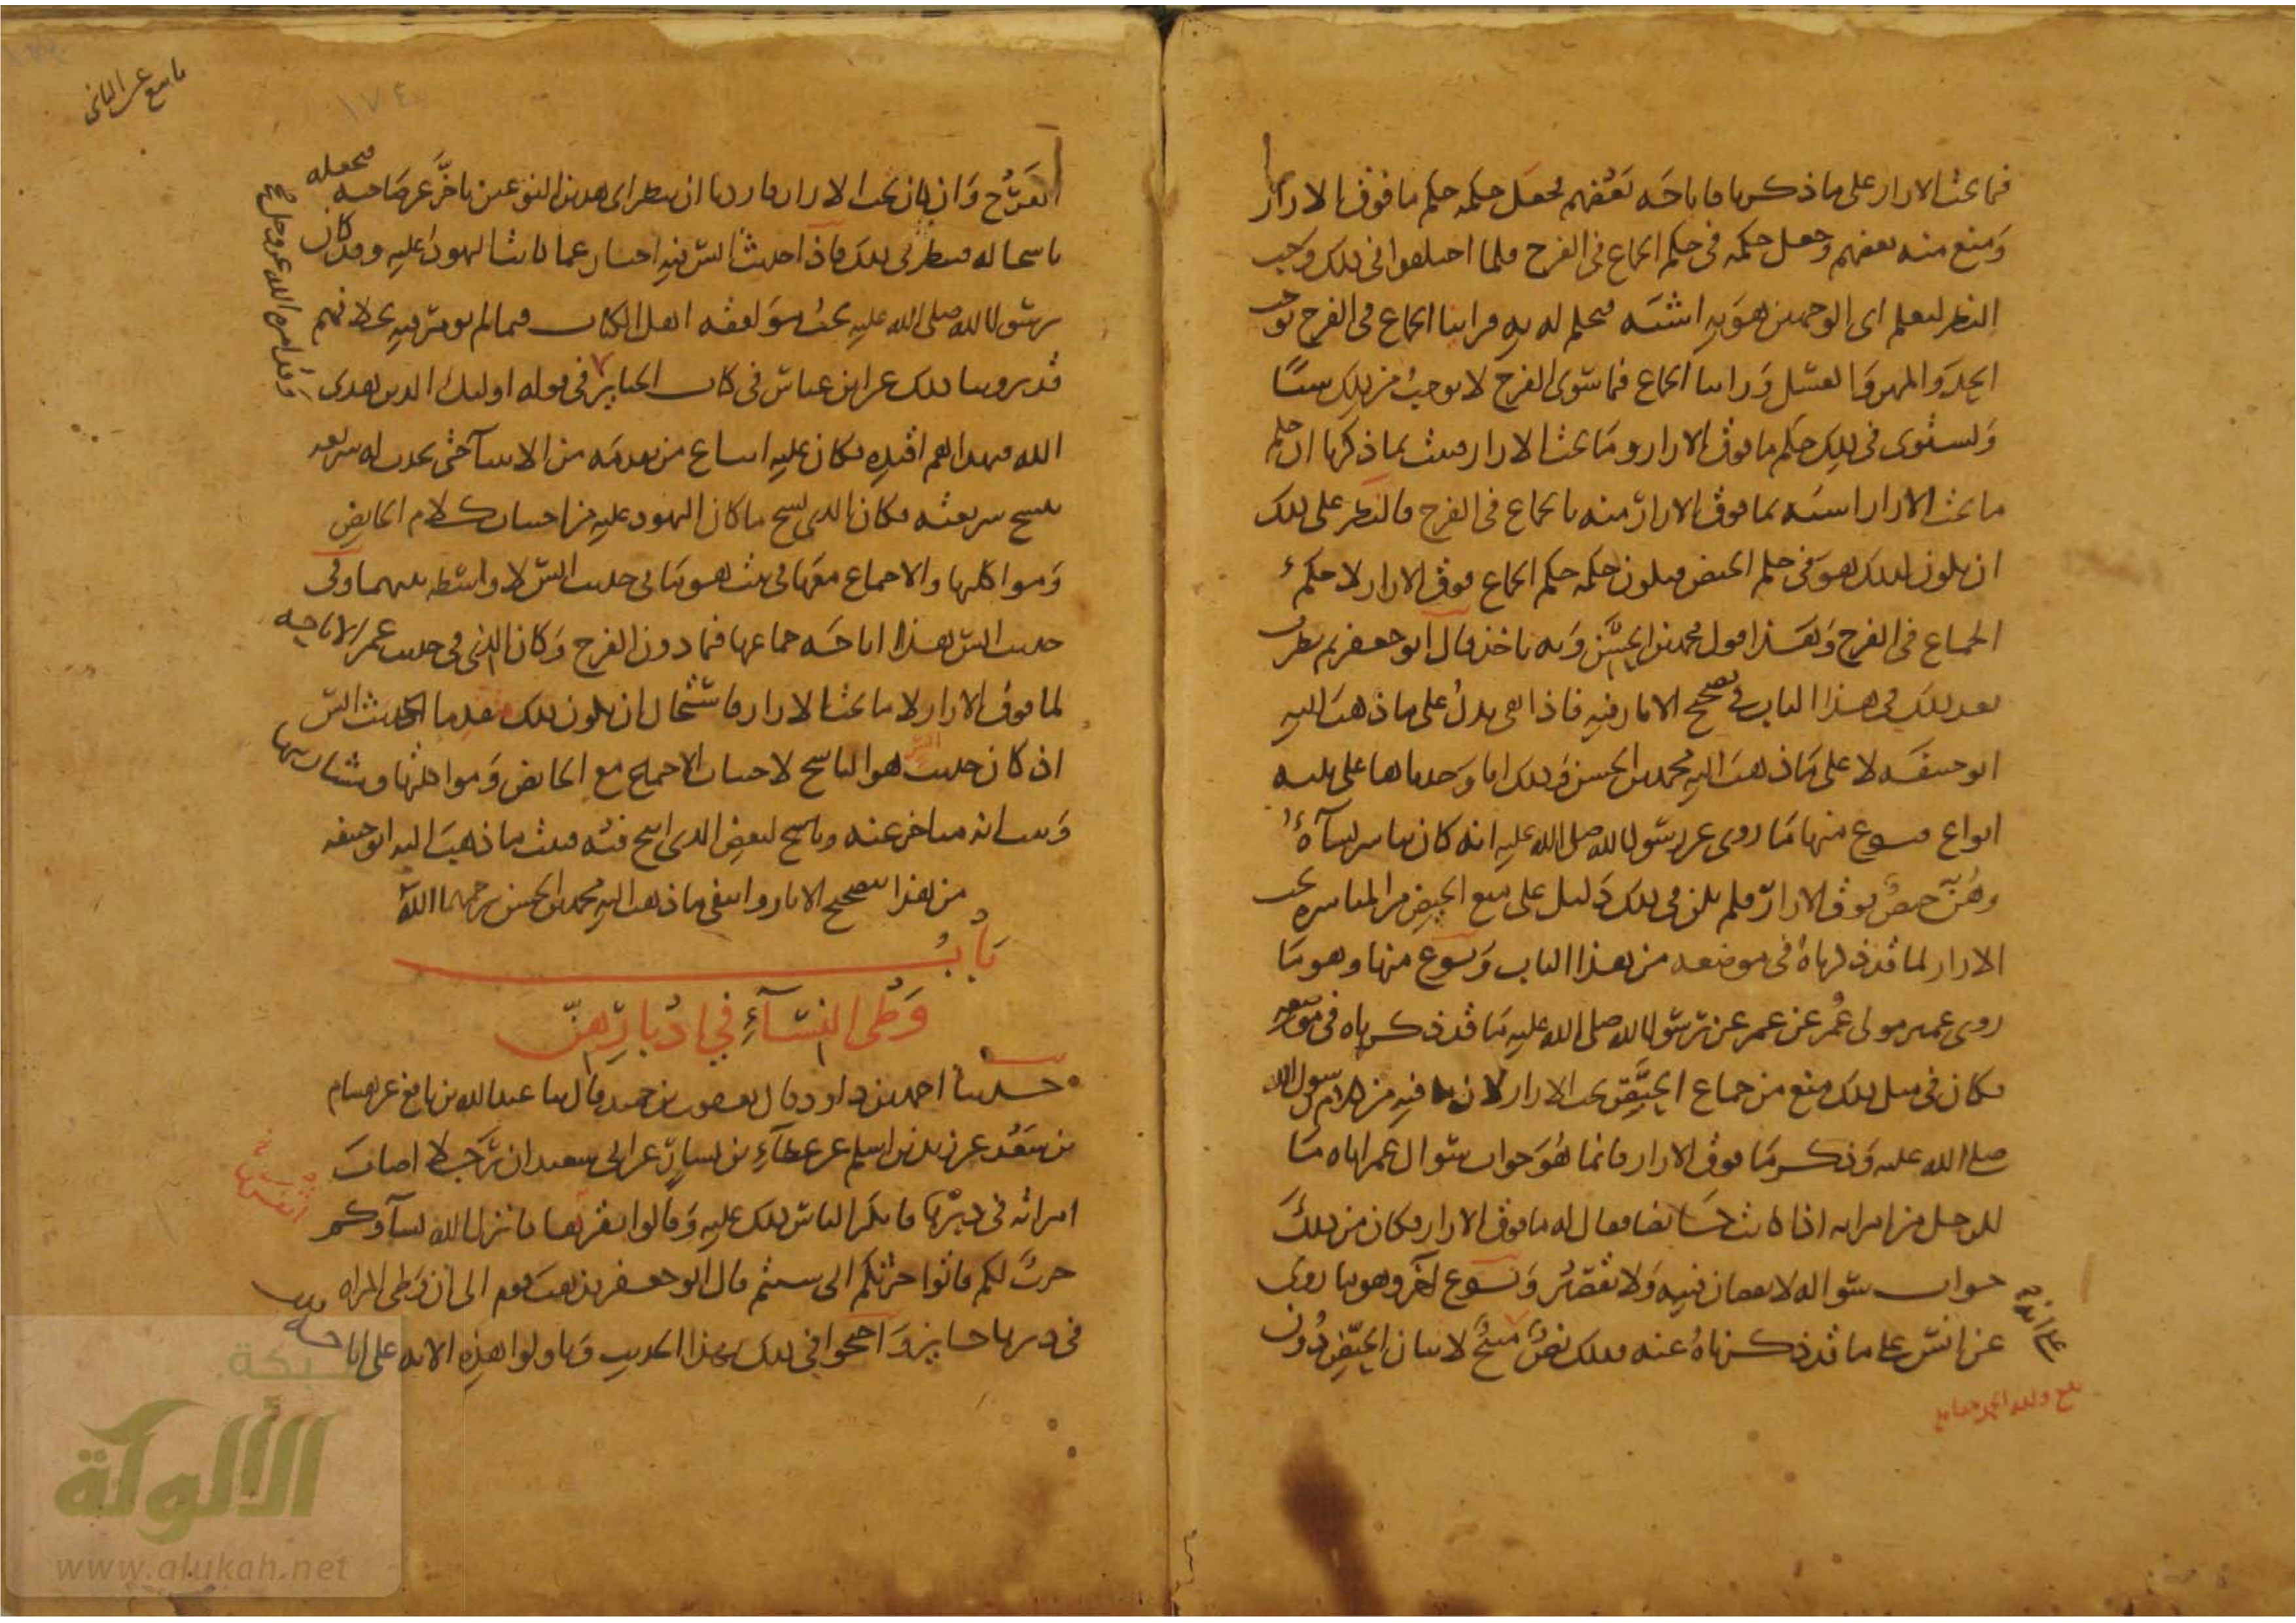 فيما تحت الازار على ما ذكرنا فاباحه بعضهم فجعل حكمه حكم ما فوق الازار
ومنع منه بعضهم وجعل حكمه في حكم الجماع في الفرج فلما اختلفوا في ذلك وجب
النظر لنعلم اي الوجهين هو به اشبه فيحكم له به فراينا الجماع في الفرج يوجب
الحد والمهر والغسل وراينا الجماع فيما سوى الفرج لا يوجب من ذلك شيا
ويستوى في ذلك حكم ما فوق الازار وما تحت الازار فثبت بما ذكرنا ان حكم
ما تحت الازار اشبه بما فوق الازار منه بالجماع في الفرج فالنظر على ذلك
ان يكون كذلك هو في حكم الحيض فيكون حكمه حكم الجماع فوق الازار لا حكم
الجماع في الفرج وهذا قول محمد بن الحسن وبه ناخذ قال ابو جعفر ثم نظرت
بعد ذلك في هذا الباب في تصحيح الاثار فيه فاذا هي تدل على ما ذهب اليه
ابو حنيفه لا على ما ذهب اليه محمد بن الحسن وذلك انا وجدناها على ثلثه
انواع فنوع منها ما روى عن رسول الله صلى الله عليه انه كان يباشر نساءه
وهن حيض فوق الازار فلم يكن في ذلك دليل على منع الحيض من المباشره تحت
الازار لما قد ذكرناه في موضعه من هذا الباب ونوع منها وهو ما
روى عمير مولى عمر عن عمر عن رسول الله صلى الله عليه ما قد ذكرناه في موضعه
فكان في مثل ذلك منع من جماع الحيض تحت الازار لان ما فيه من كلام رسول الله
صلى الله عليه وذكر ما فوق الازار فانما هو جواب سوال عمر اياه ما
للرجل من امراته اذا كانت حايضا فقال له ما فوق الازار فكان من ذلك
جواب سواله لا نقصان فيه ولا تقصير ونوع اخر وهو ما روى
عن انس على ما قد ذكرناه عنه فذلك نص مبيح لاتيان الحيض دون
بلغ
تاسع عشر الثانى
١٧٤
الفرج وان كان تحت الازار فاردنا ان ننظر اى هذين النوعين تاخر عن صاحبه فنجعله
ناسخا له فنظرنا في ذلك فاذا حديث انس فيه اخبار عما كانت اليهود عليه وقد كان
رسول الله صلى الله عليه يحب موافقه اهل الكتاب فيما لم يومر فيه بخلافهم
قد روينا ذلك عن ابن عباس في كتاب الجنايز في قوله اوليك الذين هدى
وقد امره الله عز وجل
الله فبهداهم اقتده فكان عليه اتباع من تقدمه من الانبيا حتى يحدث له شريعه
تنسخ شريعته فكان الذى نسخ ما كان اليهود عليه من اجتناب كلام الحايض
ومواكلتها والاجتماع معها في بيت هو ما في حديث انس لا واسطه بينهما وفى
حديث انس هذا اباحه جماعها فيما دون الفرج وكان الذى في حديث عمر الاباحه
لما فوق الازار لا ما تحت الازار فاستحال ان يكون ذلك متقدما لحديث انس
اذ كان حديث انس هو الناسخ لاجتناب الاجتماع مع الحايض ومواكلتها ومشاربتها
وثبت انه متاخر عنه وناسخ لبعض الذى ابيح فيه فثبت ما ذهب اليه ابو حنيفه
من هذا بتصحيح الاثار وانتفى ما ذهب اليه محمد بن الحسن رحمهما الله
باب
وطى النساء في ادبارهن
حدثنا احمد بن داود قال يعقوب بن حميد قال ثنا عبد الله بن نافع عن هشام
بن سعد عن زيد بن اسلم عن عطاء بن يسار عن ابي سعيد ان رجلا اصاب
امراته في دبرها فانكر الناس ذلك عليه وقالوا اثفرها فانزل الله نساوكم
حرث لكم فاتوا حرثكم انى شيتم قال ابو جعفر فذهب قوم الى ان وطى المراه
في دبرها جايز واحتجوا في ذلك بهذا الحديث وتاولوا هذه الايه على اباحه ذلك
شبكة
الألوكة
www.alukah.net